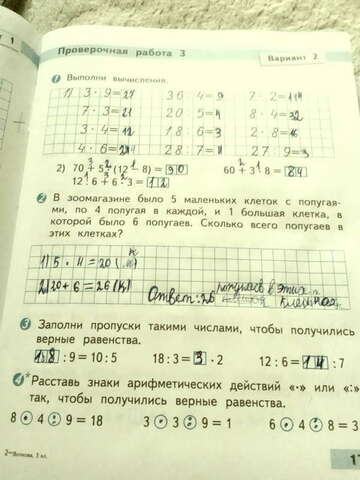 Проверочная работа 3
Вариант 2
1 Выполни вычисления.
1) 3 · 9=27 36 : 4=9 7 · 2=14
7 · 3=21 20 : 5=4 8 · 4=32
3 · 4=12 18 : 6=3 2 · 8=16
4 · 6=24 28 : 7=4 27 : 9=3
2) 70 + 5 · (12 – 8) = 90 60 + 3 · 8 = 84
12 : 6 + 6 · 3 = 12
2 В зоомагазине было 5 маленьких клеток с попугая-
ми, по 4 попугая в каждой, и 1 большая клетка, в
которой было 6 попугаев. Сколько всего попугаев в
этих клетках?
1) 5 · 4 = 20 (к)
2) 20 + 6 = 26 (к)
Ответ: 26 попугаев в этих
клетках.
3 Заполни пропуски такими числами, чтобы получились
верные равенства.
18 : 9 = 10 : 5 18 : 3 = 3 · 2 12 : 6 = 14 : 7
4* Расставь знаки арифметических действий «·» или «:»
так, чтобы получились верные равенства.
8 · 4 : 9 = 18 3 · 3 : 9 = 1 6 · 4 : 8 = 3
2–Волкова, 3 кл.